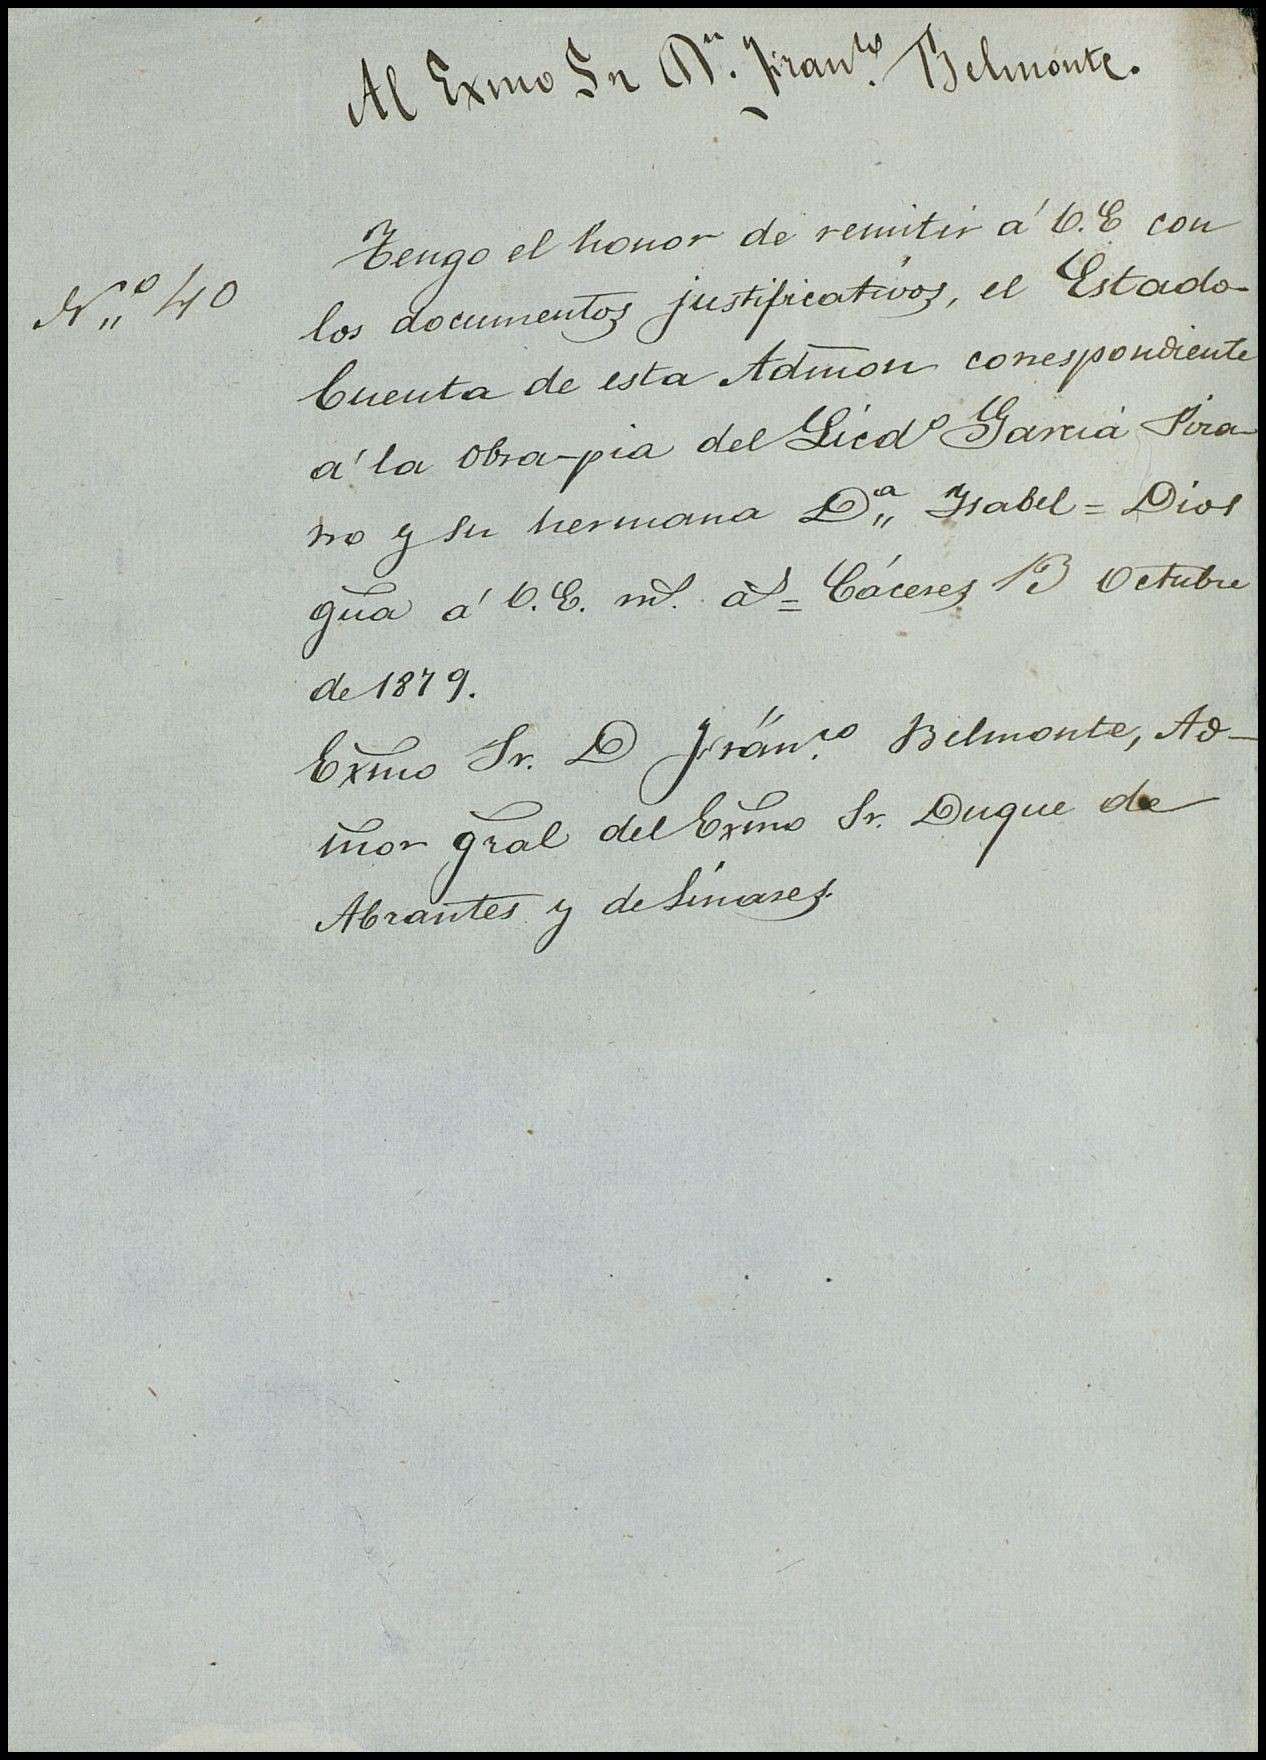 Al Exmo Sr Dn. Franco. Belmonte.
Nº 40
Tengo el honor de remitir á V.E con
los documentos justificativos, el Estado-
Cuenta de esta Admon correspondiente
á la Obra-pia del Licdº Garcia
no y su hermana Dª Ysabel = Dios
gue á V.E. ms. as = Cáceres 13 Octubre
de 1879.
Exmo Sr. D Franco. Belmonte, Ad-
mor gral del Exmo Sr. Duque de
Abrantes y de Linares.